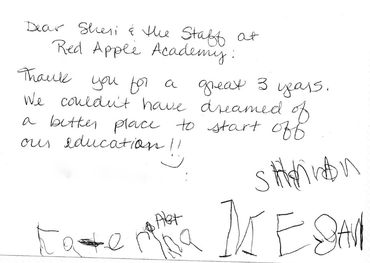 Dear Sheri & the Staff at
Red Apple Academy:
Thank you for a great 3 years.
We couldn't have dreamed of
a better place to start off
our education!!
Katerina
MEGAN